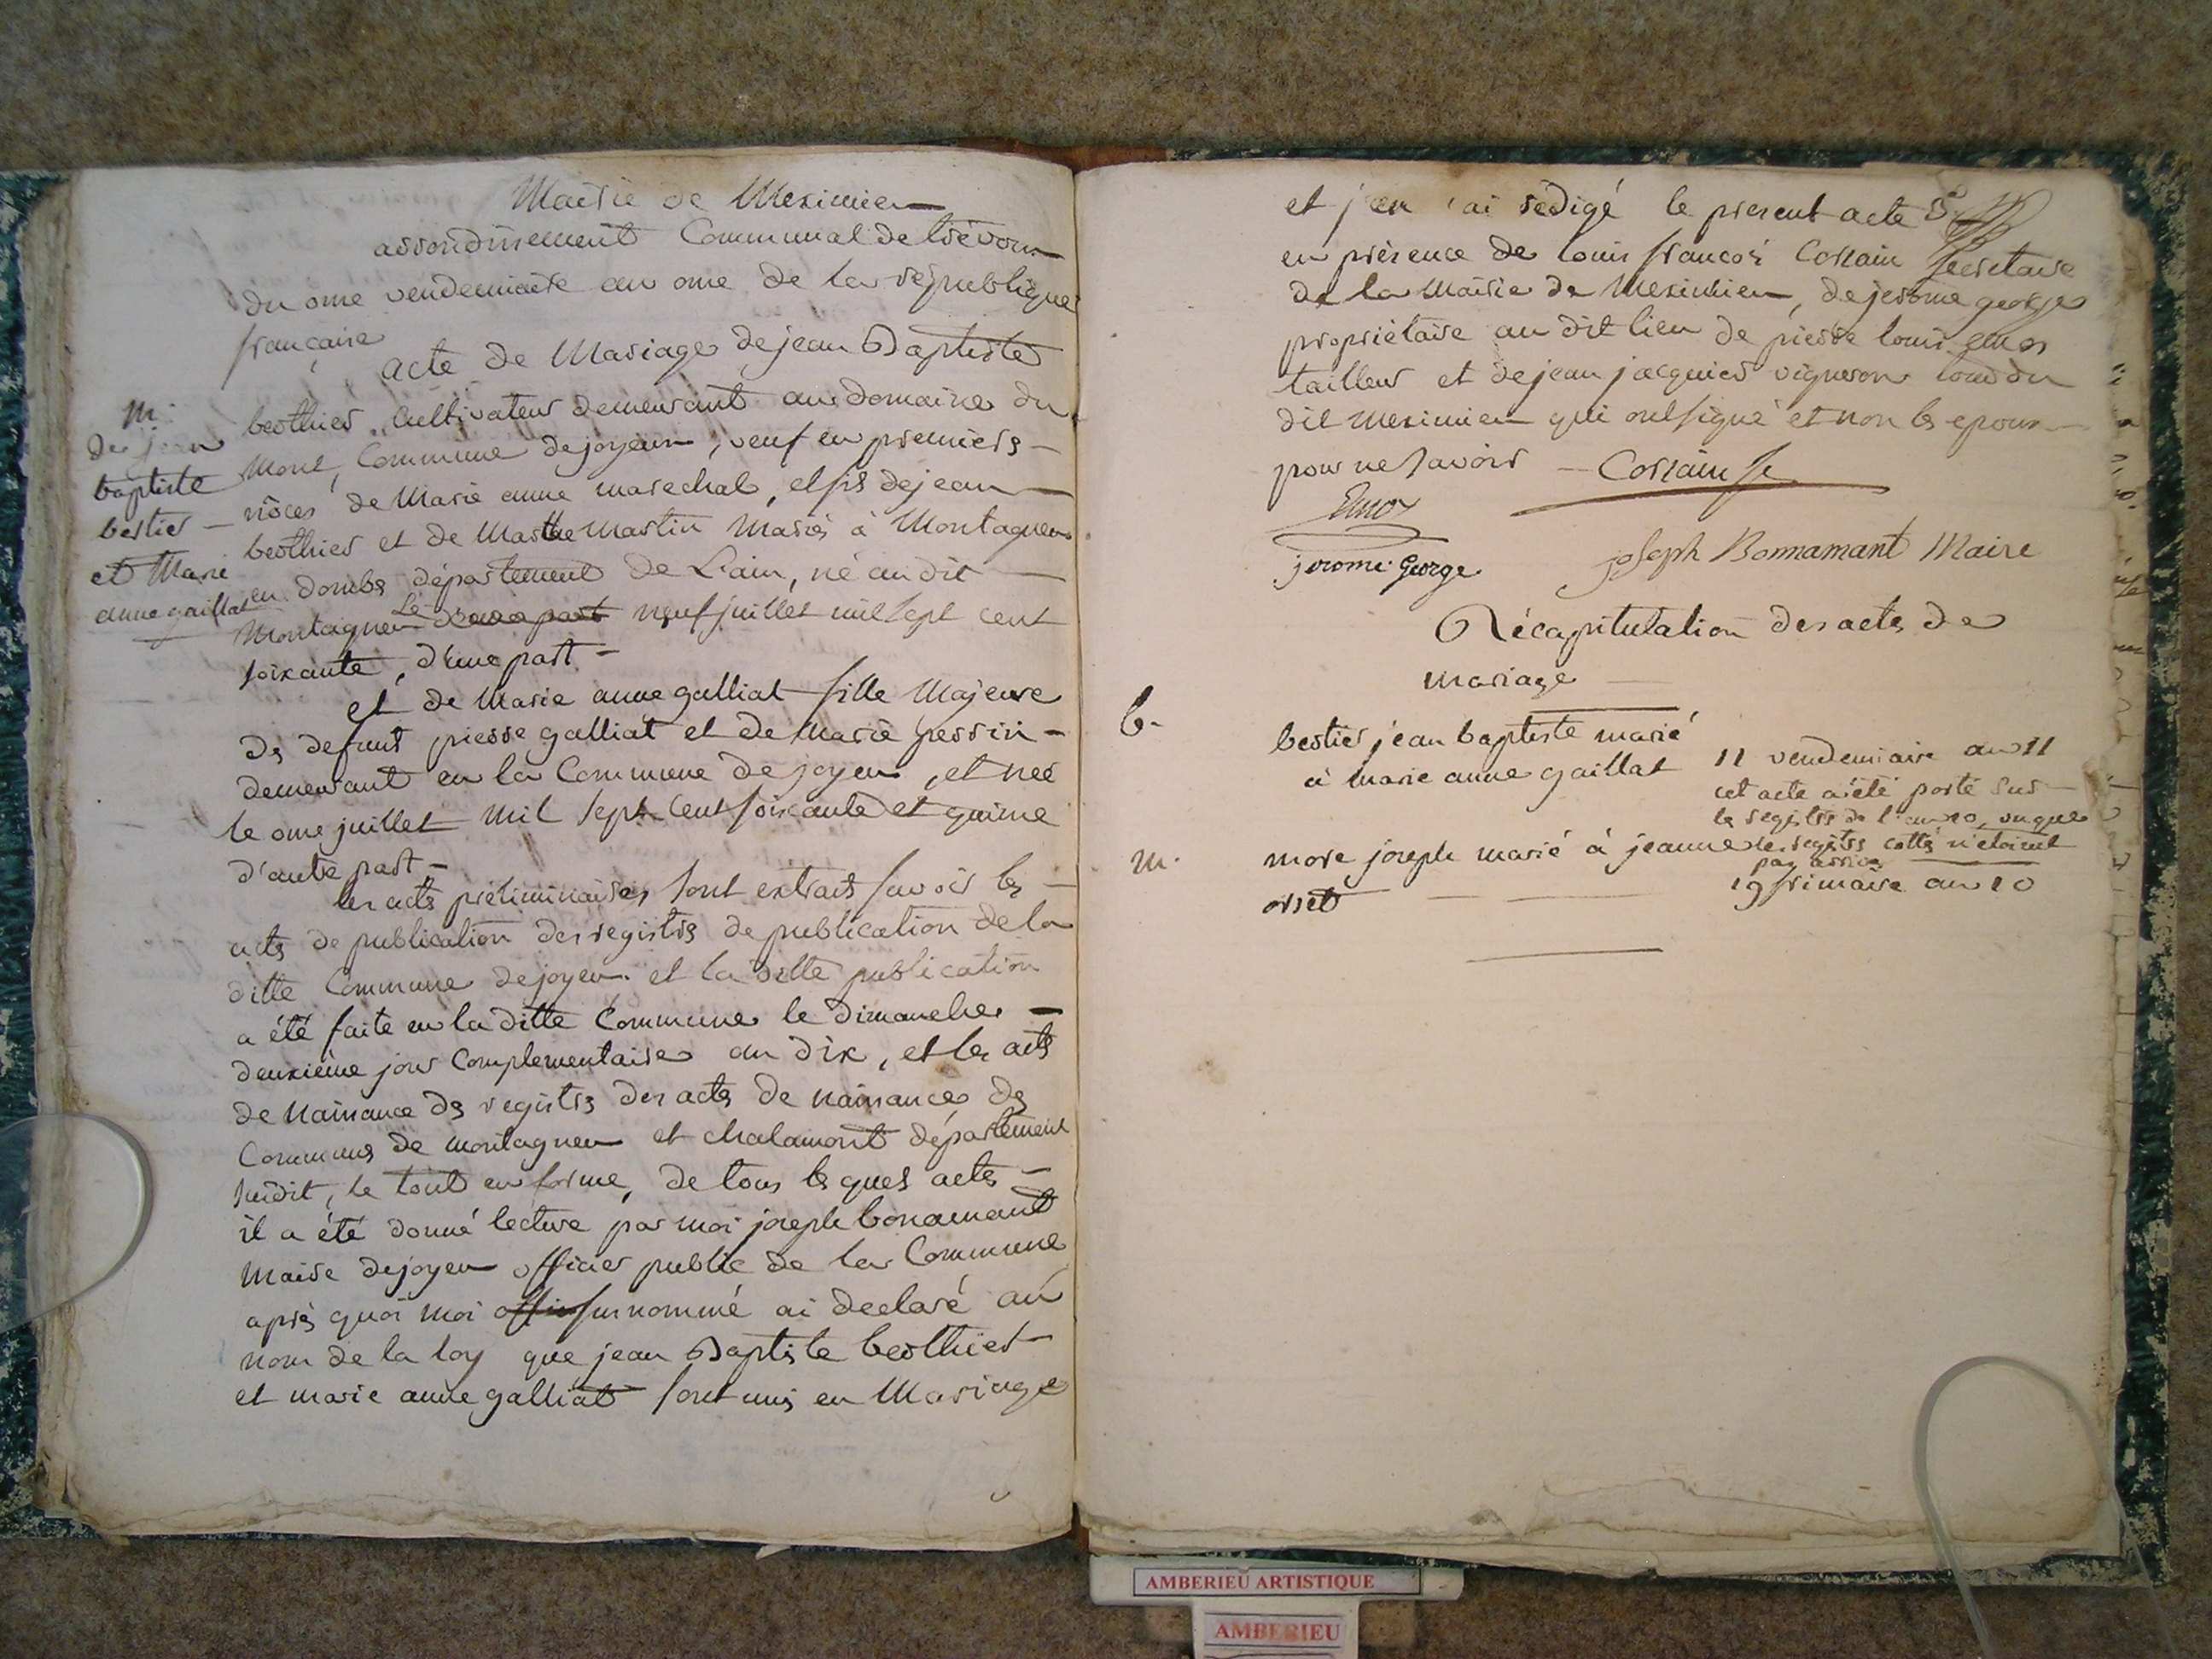 Mairie de Meximieu
arrondissement Communal de trévoux
du onze vendemiaire an onze de la republique
française
acte de Mariage de jean Baptiste
berthier, Cultivateur demeurant au domaine du
mont, Commune de joyeux, veuf en premiers
nôces de Marie anne marechal, et fils de jean
berthier et de Marthe Martin Mariés à Montagneu
en dombs département de L'ain, né au dit
Montagneu Le neuf juillet mil sept cent
soixante, d'une part
et de Marie anne galliat fille Majeure
ds defunt pierre galliat et de Marie perrin
demeurant en la Commune de joyeu, et née
le onze juillet mil sept Cent soixante et quinze
d'autre part
les acts préliminaires sont extraits savoir les
acts de publication des registrs de publication de la
ditte Commune de joyeu. et la ditte publication
a été faite en la ditte Commune le dimanche
deuxième jour Complementaire an dix, et les acts
de Naissance ds registrs des acts de naissance ds
Communs de montagneu et chalamont département
susdit, le tout en forme, de tous ls quels actes
il a été donné lecture par moi joseph bonamant
Maire de joyeu officier public de la Commune
après quoi moi susnommé ai declaré au
nom de la loy que jean Baptiste berthier
et marie anne galliat sont unis en Mariage
m.
de jean
baptiste
bertier
et Marie
anne gaillat
et j'en ai rédigé le present acte
en présence de louis françois Cossain secretaire
de la Mairie de Meximieu, de jerome george
propriétaire au dit lieu de pierre louis
tailleur et de jean jacquier vigneron tous du
dit meximieu qui ont signé et non ls epoux
pour ne savoir Cossain
jerome George
joseph Bonnamant Maire
Récapitulation des acts de
mariage
b.
bertier jean baptiste marié
à marie anne gaillat
11 vendemiaire an 11
cet acte a été porté sur
ls registrs de l'an 10, vu que
les registrs cottés n'étoient
pas arrivés
m.
more joseph marié à jeanne
orset
19 frimaire an 10
AMBERIEU ARTISTIQUE
AMBERIEU